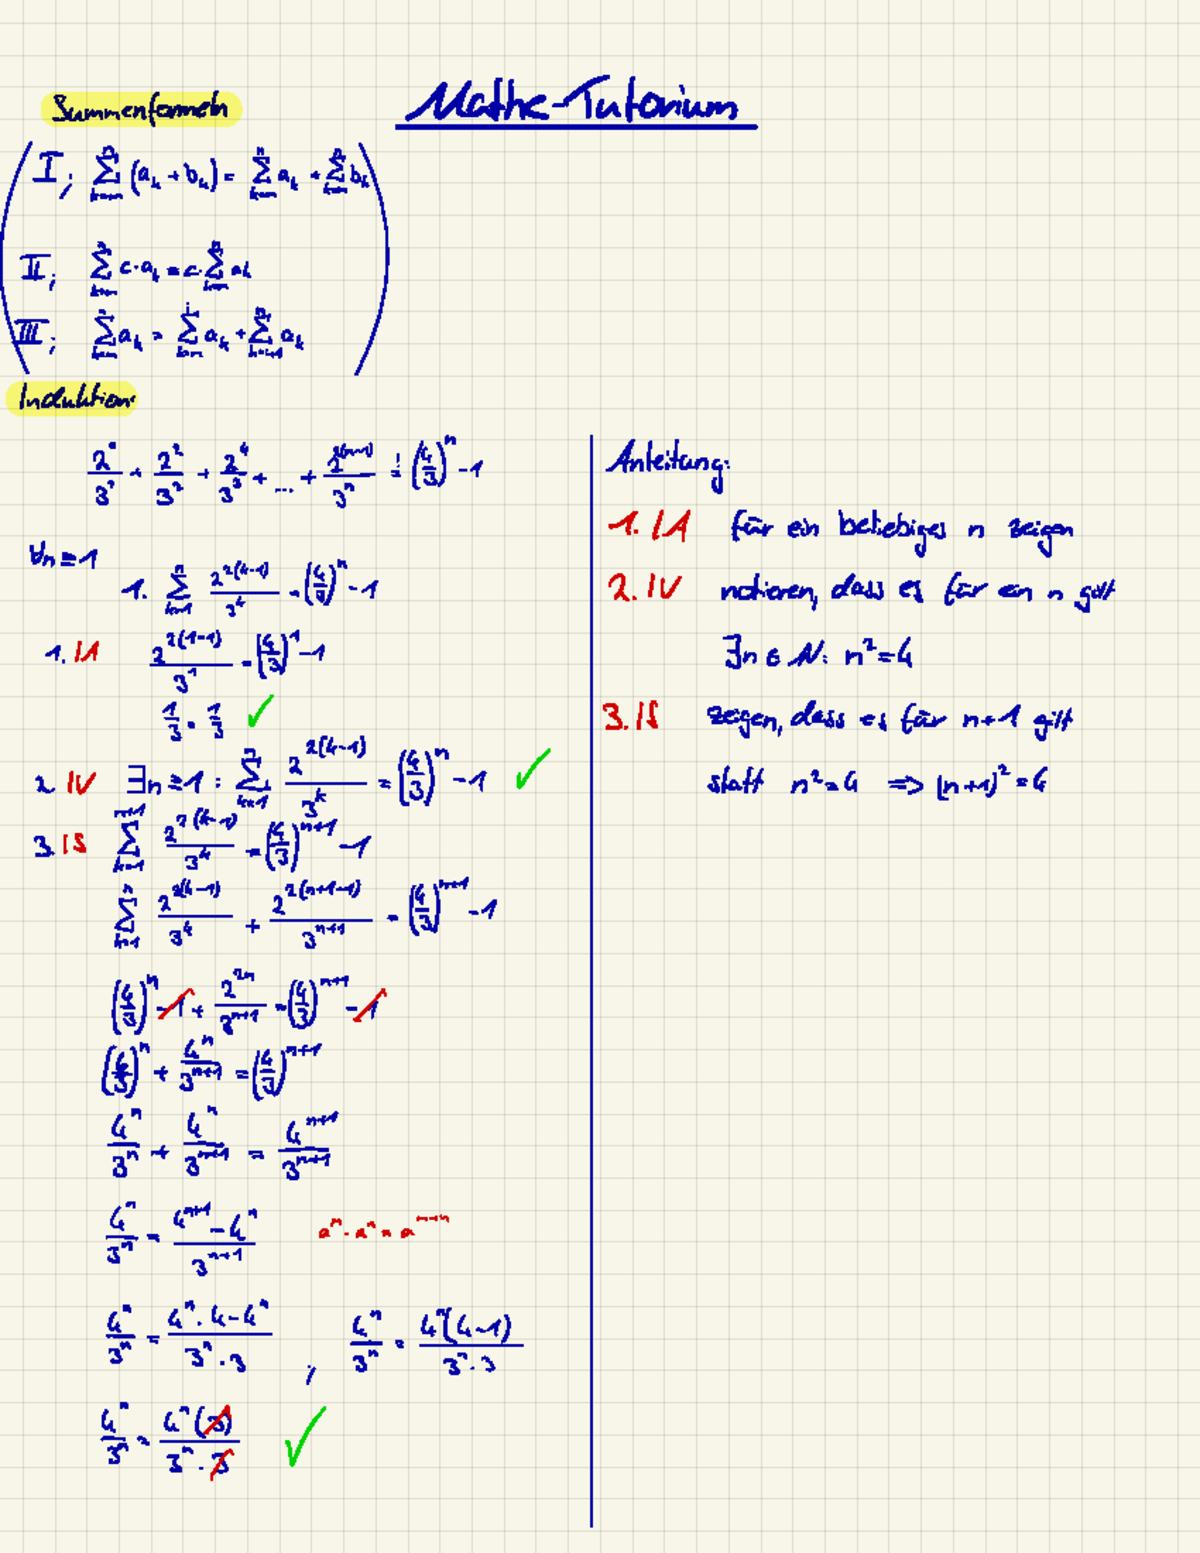 Mathe-Tutorium
Summenformeln
I; ∑(aₖ + bₖ) = ∑aₖ + ∑bₖ
II; ∑c·aₖ = c·∑aₖ
III; ∑aₖ = ∑aₖ + ∑aₖ
Induktion:
2⁰/3¹ + 2²/3² + 2⁴/3³ + ... + 2^(2(n-1))/3ⁿ = (4/3)ⁿ - 1
∀n ≥ 1
1. ∑ 2^(2(k-1))/3^k = (4/3)^n - 1
1. IA 2^(2(1-1))/3^1 = (4/3)^1 - 1
1/3 = 1/3 ✓
2 IV ∃n ≥ 1 : ∑_(k=1)^n 2^(2(k-1))/3^k = (4/3)^n - 1 ✓
3. IS ∑^(n+1) 2^(2(k-1))/3^k = (4/3)^(n+1) - 1
∑ 2^(2(k-1))/3^k + 2^(2(n+1-1))/3^(n+1) = (4/3)^(n+1) - 1
(4/3)^n - 1 + 2^(2n)/3^(n+1) = (4/3)^(n+1) - 1
(4/3)^n + 4^n/3^(n+1) = (4/3)^(n+1)
4^n/3^n + 4^n/3^(n+1) = 4^(n+1)/3^(n+1)
4^n/3^n = (4^(n+1) - 4^n)/3^(n+1) a^m · a^n = a^(m+n)
4^n/3^n = (4^n · 4 - 4^n)/(3^n · 3) ; 4^n/3^n = 4^n(4-1)/(3^n · 3)
4^n/3^n = 4^n(3)/(3^n · 3) ✓
Anleitung:
1. IA für ein beliebiges n zeigen
2. IV notieren, dass es für ein n gilt
∃n ∈ N: n² = 4
3. IS zeigen, dass es für n+1 gilt
statt n² = 4 => (n+1)² = 4